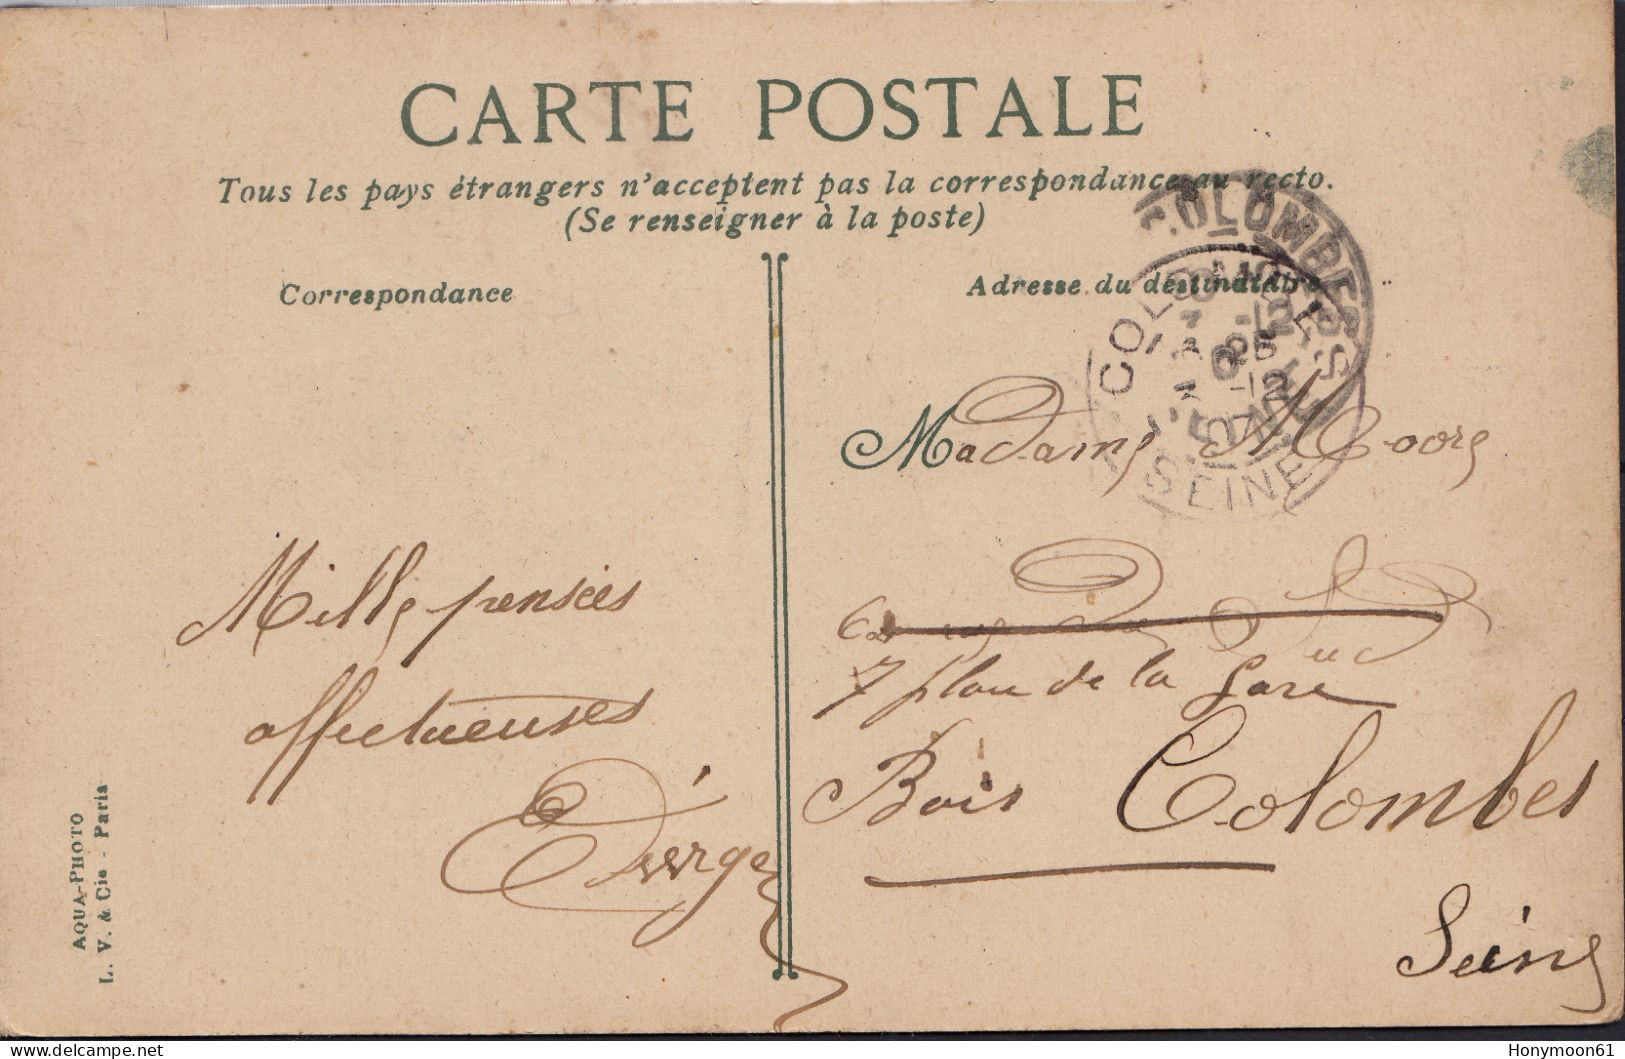 CARTE POSTALE
Tous les pays étrangers n'acceptent pas la correspondance au recto.
(Se renseigner à la poste)
Correspondance
Adresse du destinataire
COLOMBES
COLOMBES
SEINE
Madame Moore
7 place de la Gare
Bois Colombes
Seine
Mille pensées
affectueuses
AQUA-PHOTO
L. V. & Cie - Paris
Honymoon61